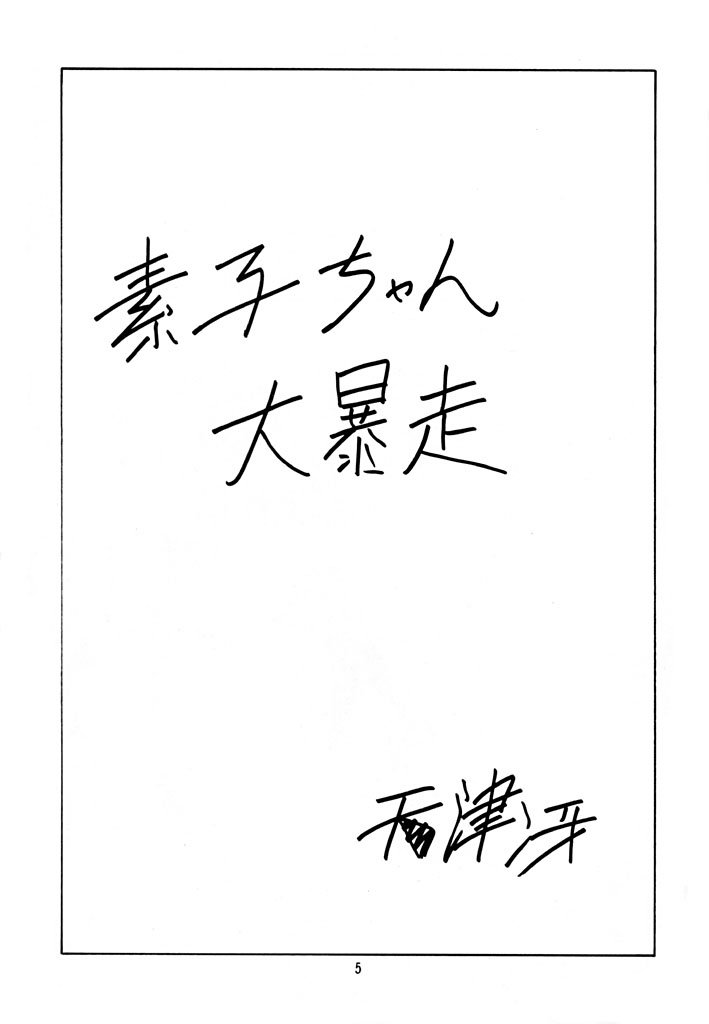 素子ちゃん
大暴走
天津冴
5